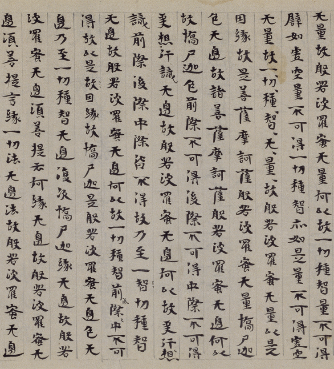 无量故般若波羅蜜无量何以故一切種智量不可得
辟如虛空量不可得一切種智亦如是量不可得虛空
无量故一切種智无量一切種智无量故般若波羅蜜无量以是
因緣故是菩薩摩訶薩般若波羅蜜无量憍尸迦
色无邊故諸菩薩摩訶薩般若波羅蜜无邊何以
故憍尸迦色前際不可得後際不可得中際不可得
受想行識无邊故般若波羅蜜无邊何以故受想行
識前際後際中際皆不可得故乃至一切種智
无邊故般若波羅蜜无邊何以故一切種智前際中不可
得故以是因緣故憍尸迦是般若波羅蜜无邊色无
邊乃至一切種智无邊復次憍尸迦緣无邊故般若
波羅蜜无邊須菩提云何緣无邊故般若波羅蜜无
邊須菩提言緣一切法无邊法故般若波羅蜜无邊